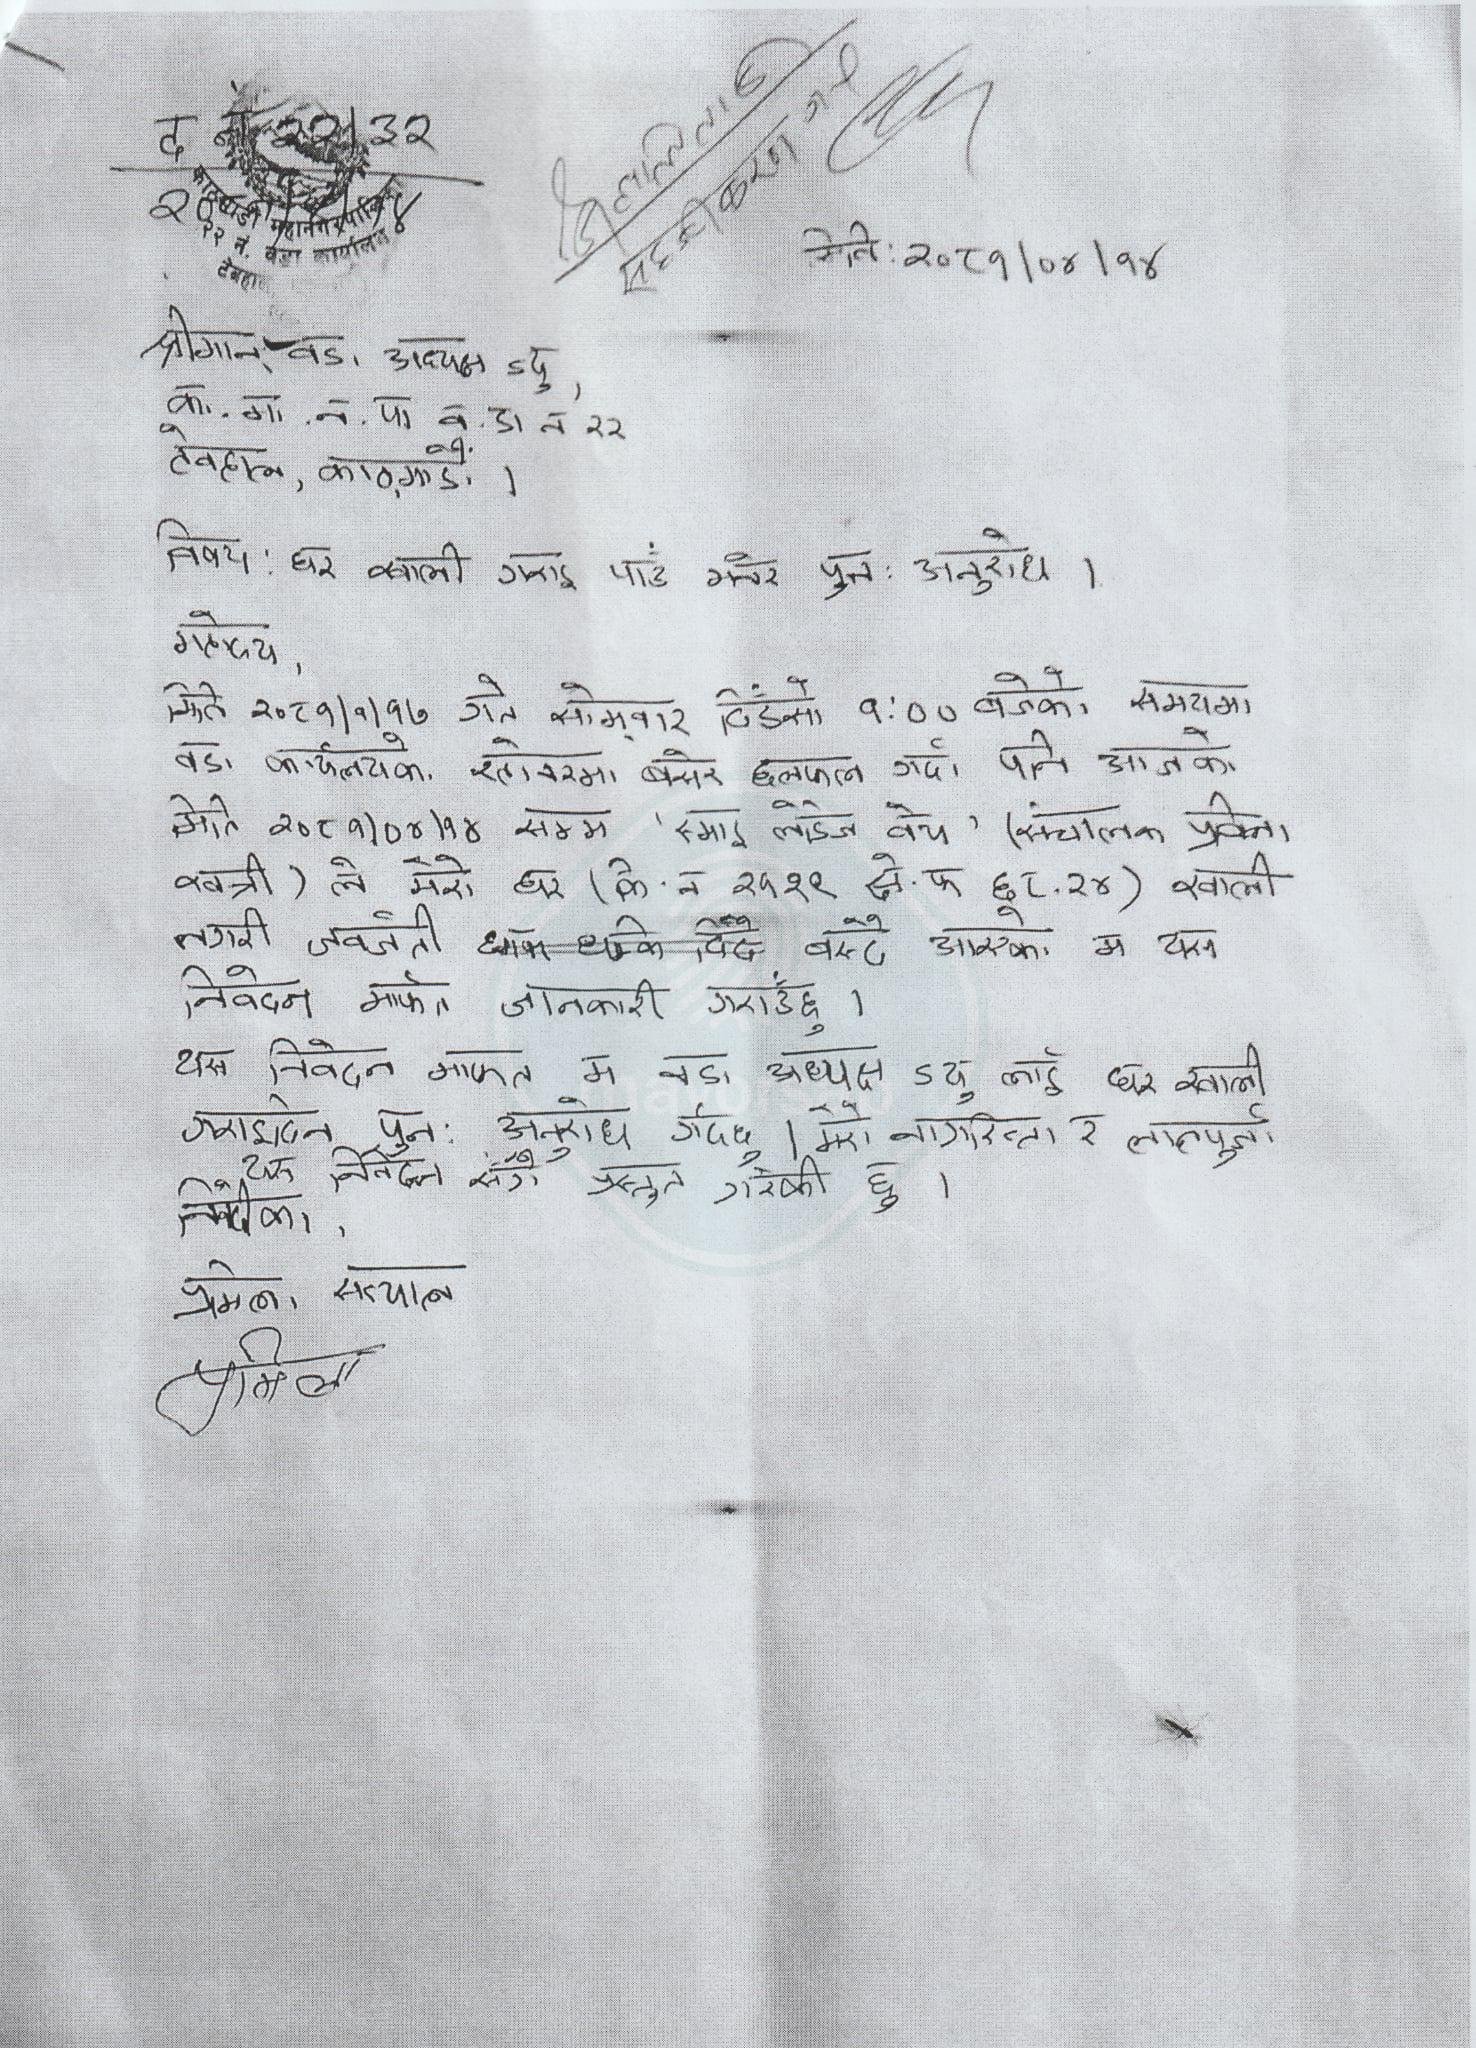 द नं २२/३२
काठमाडौं महानगरपालिका
२२ नं. वडा कार्यालय
टेबहाल
मेलमिलाप
सहजीकरण गर्ने
मिति: २०८१/०४/१४
श्रीमान् वडा अध्यक्ष ज्यु,
का. मा. न. पा व. डा नं २२
टेवहाल, काठमाडौं ।
विषय: घर खाली गराइ पाउँ भनेर पुन: अनुरोध ।
महोदय,
मिति २०८१/१/१७ गते सोम्वार दिउँसो १:०० बजेको समयमा
वडा कार्यलयको रोहवरमा बसेर छलफल गर्दा पनि आजको
मिति २०८१/०४/१४ सम्म 'स्माइ लेडिज वेय' (संचालक प्रविना
खत्री) ले मेरो घर (कि. नं २५१९ क्षे. फ ६८.२४) खाली
नगरी जबर्जस्ती धाक धम्कि दिँदै बस्दै आएको म यस
निवेदन मार्फत जानकारी गराउँछु ।
यस निवेदन मार्फत म वडा अध्यक्ष ज्यु लाई घर खाली
गराइदिन पुन: अनुरोध गर्दछु । मेरो नागरिन्ता र लालपुर्जा
यस निवेदन सँगै प्रस्तुत गरेकी छु ।
निवेदीका,
प्रमिला सत्याल
प्रमिला